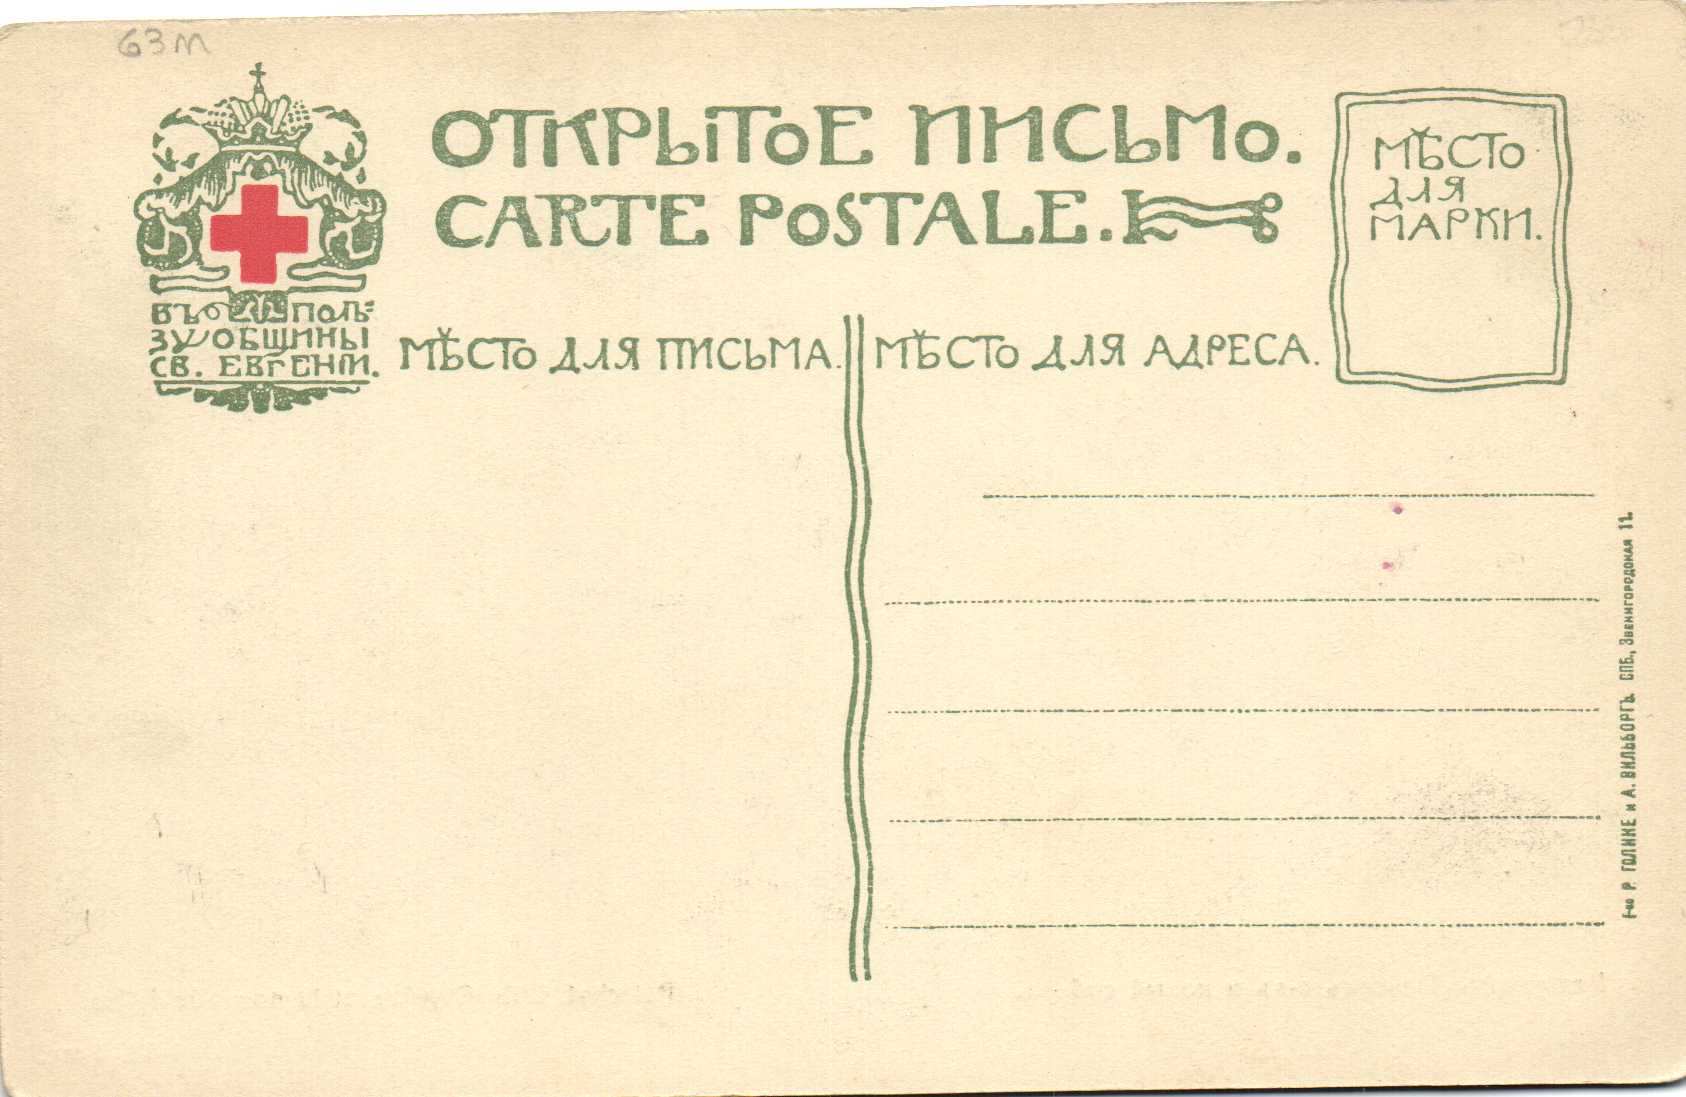 63м
ОТКРЫТОЕ ПИСЬМО.
CARTE POSTALE.
МѢСТО
ДЛЯ
МАРКИ.
ВЪ ПОЛЬ=
ЗУ ОБЩИНЫ
СВ. ЕВГЕНІИ.
МѢСТО ДЛЯ ПИСЬМА.
МѢСТО ДЛЯ АДРЕСА.
Т-во Р. ГОЛИКЕ и А. ВИЛЬБОРГЪ. СПБ., Звенигородская 11.